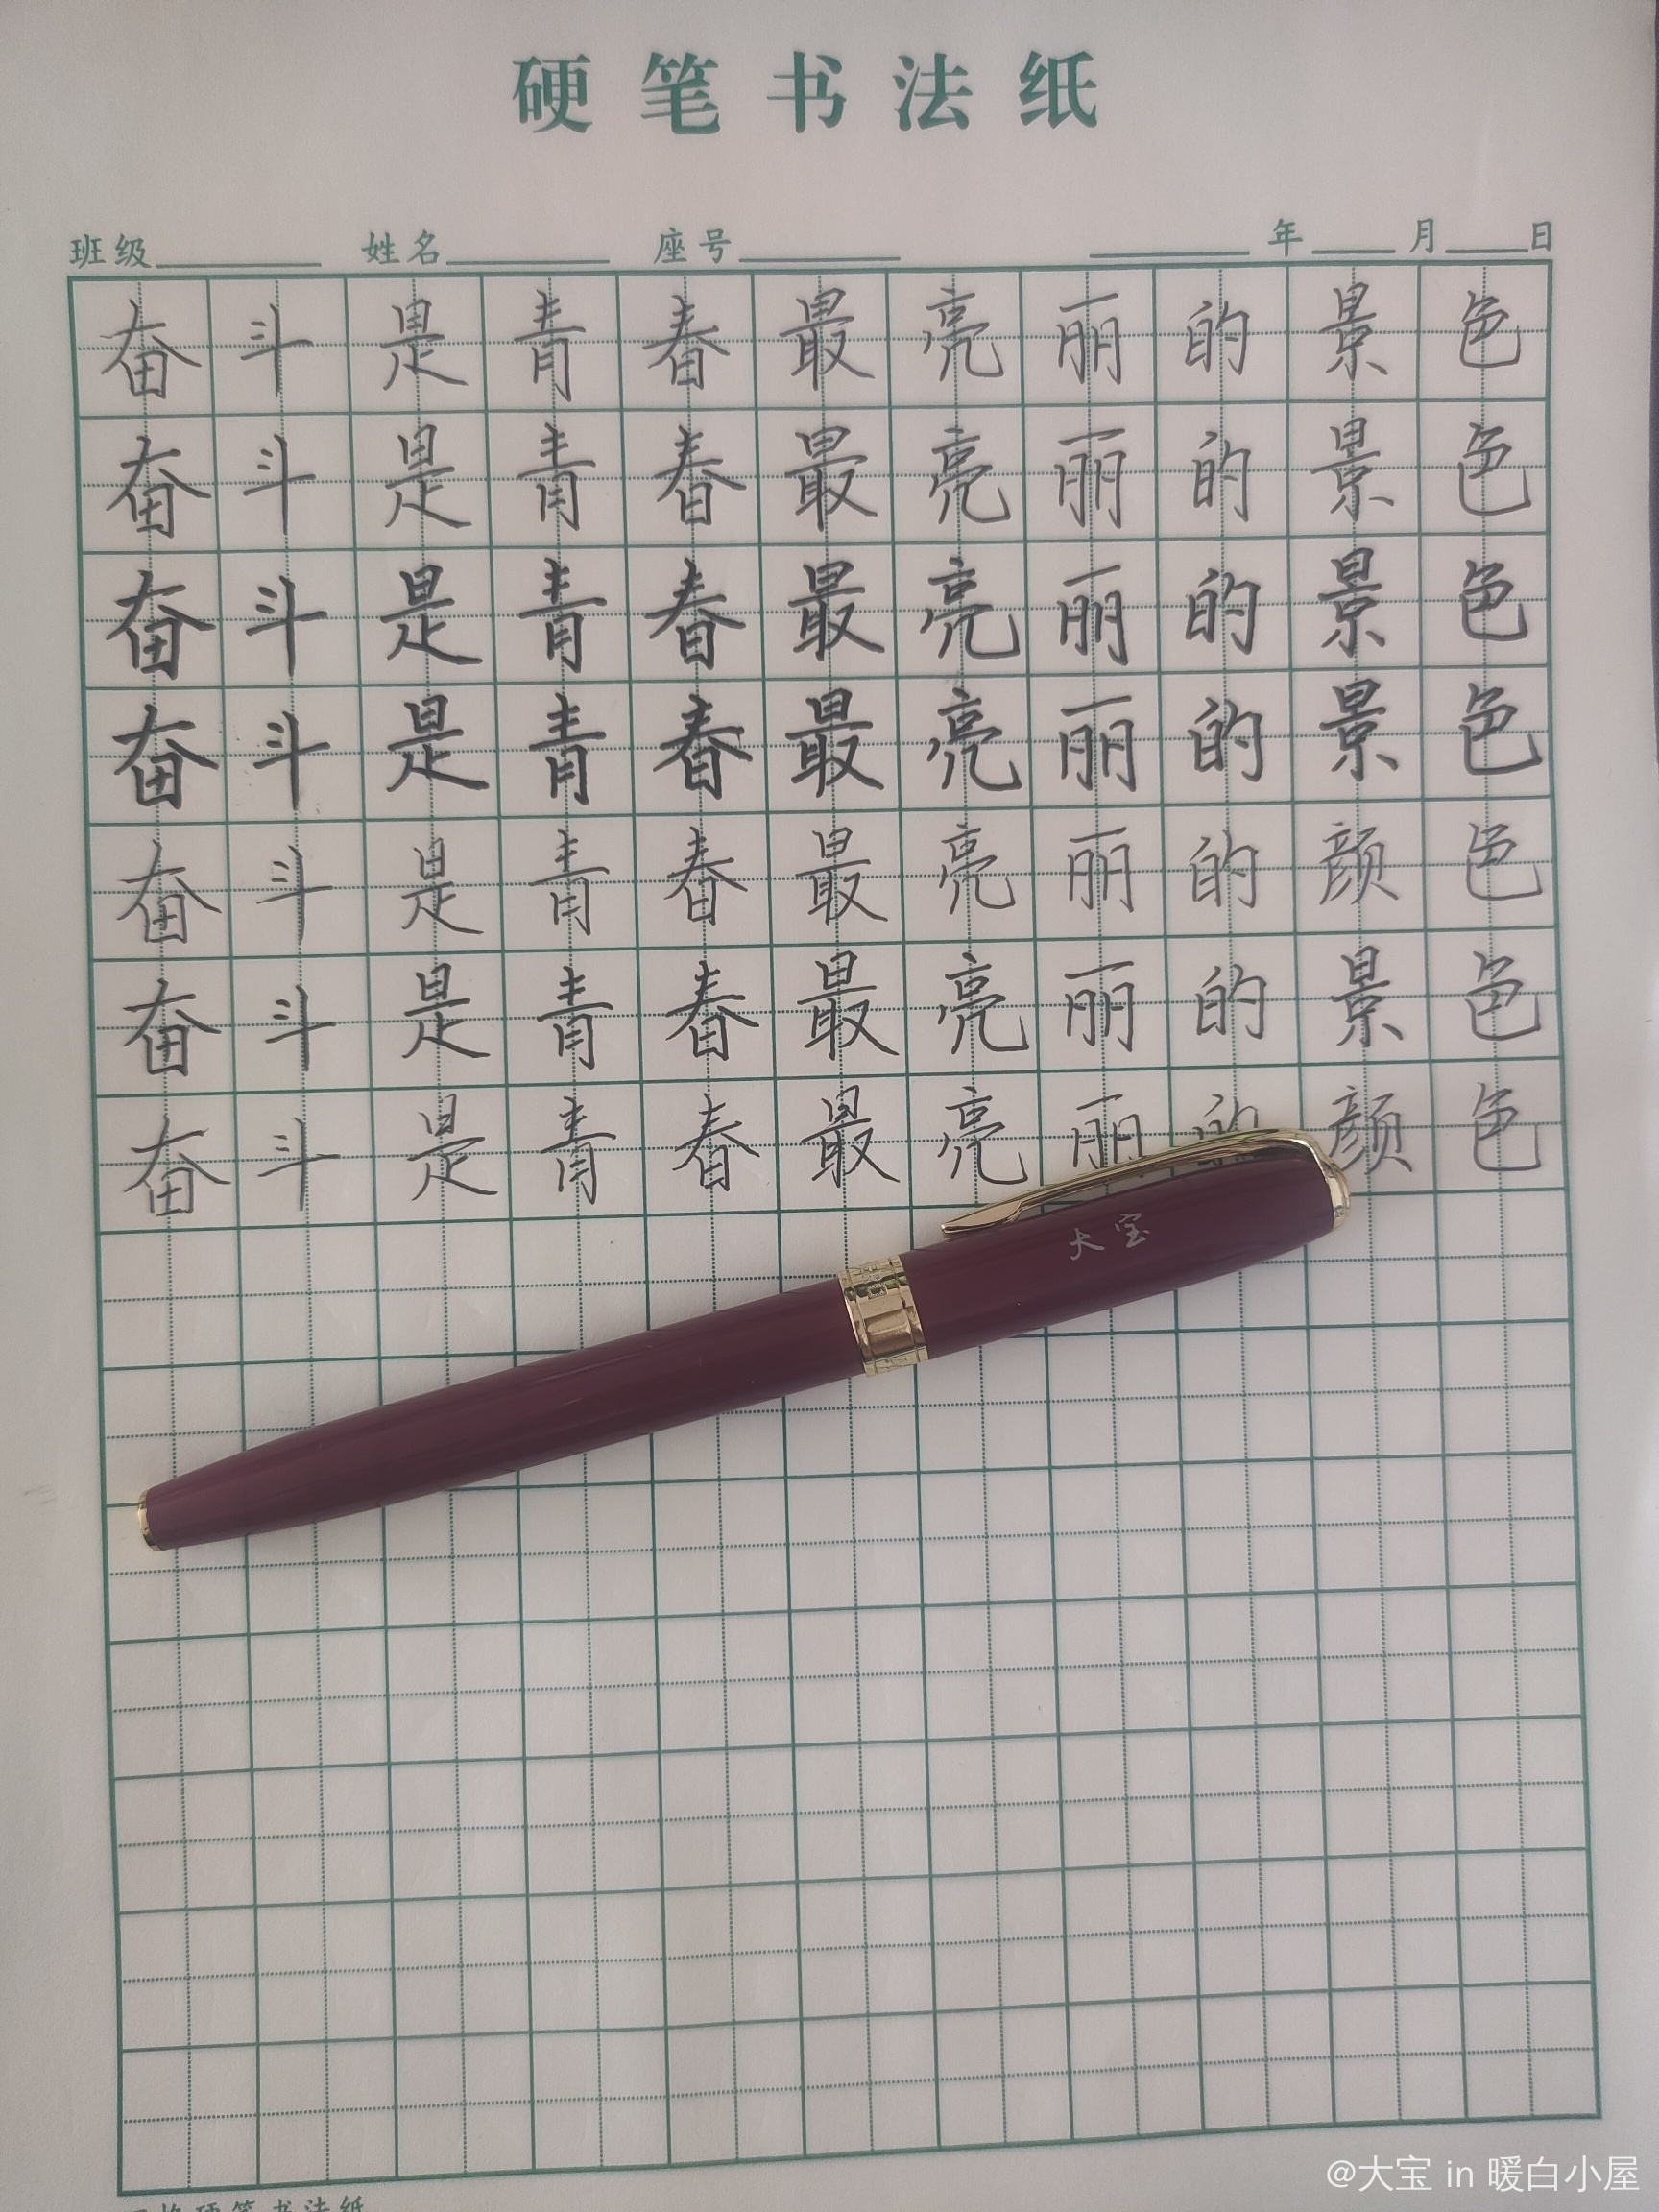 硬笔书法纸
班级 姓名 座号 年 月 日
奋斗是青春最亮丽的景色
奋斗是青春最亮丽的景色
奋斗是青春最亮丽的景色
奋斗是青春最亮丽的景色
奋斗是青春最亮丽的颜色
奋斗是青春最亮丽的景色
奋斗是青春最亮丽的颜色
大宝
硬笔书法纸
@大宝 in 暖白小屋